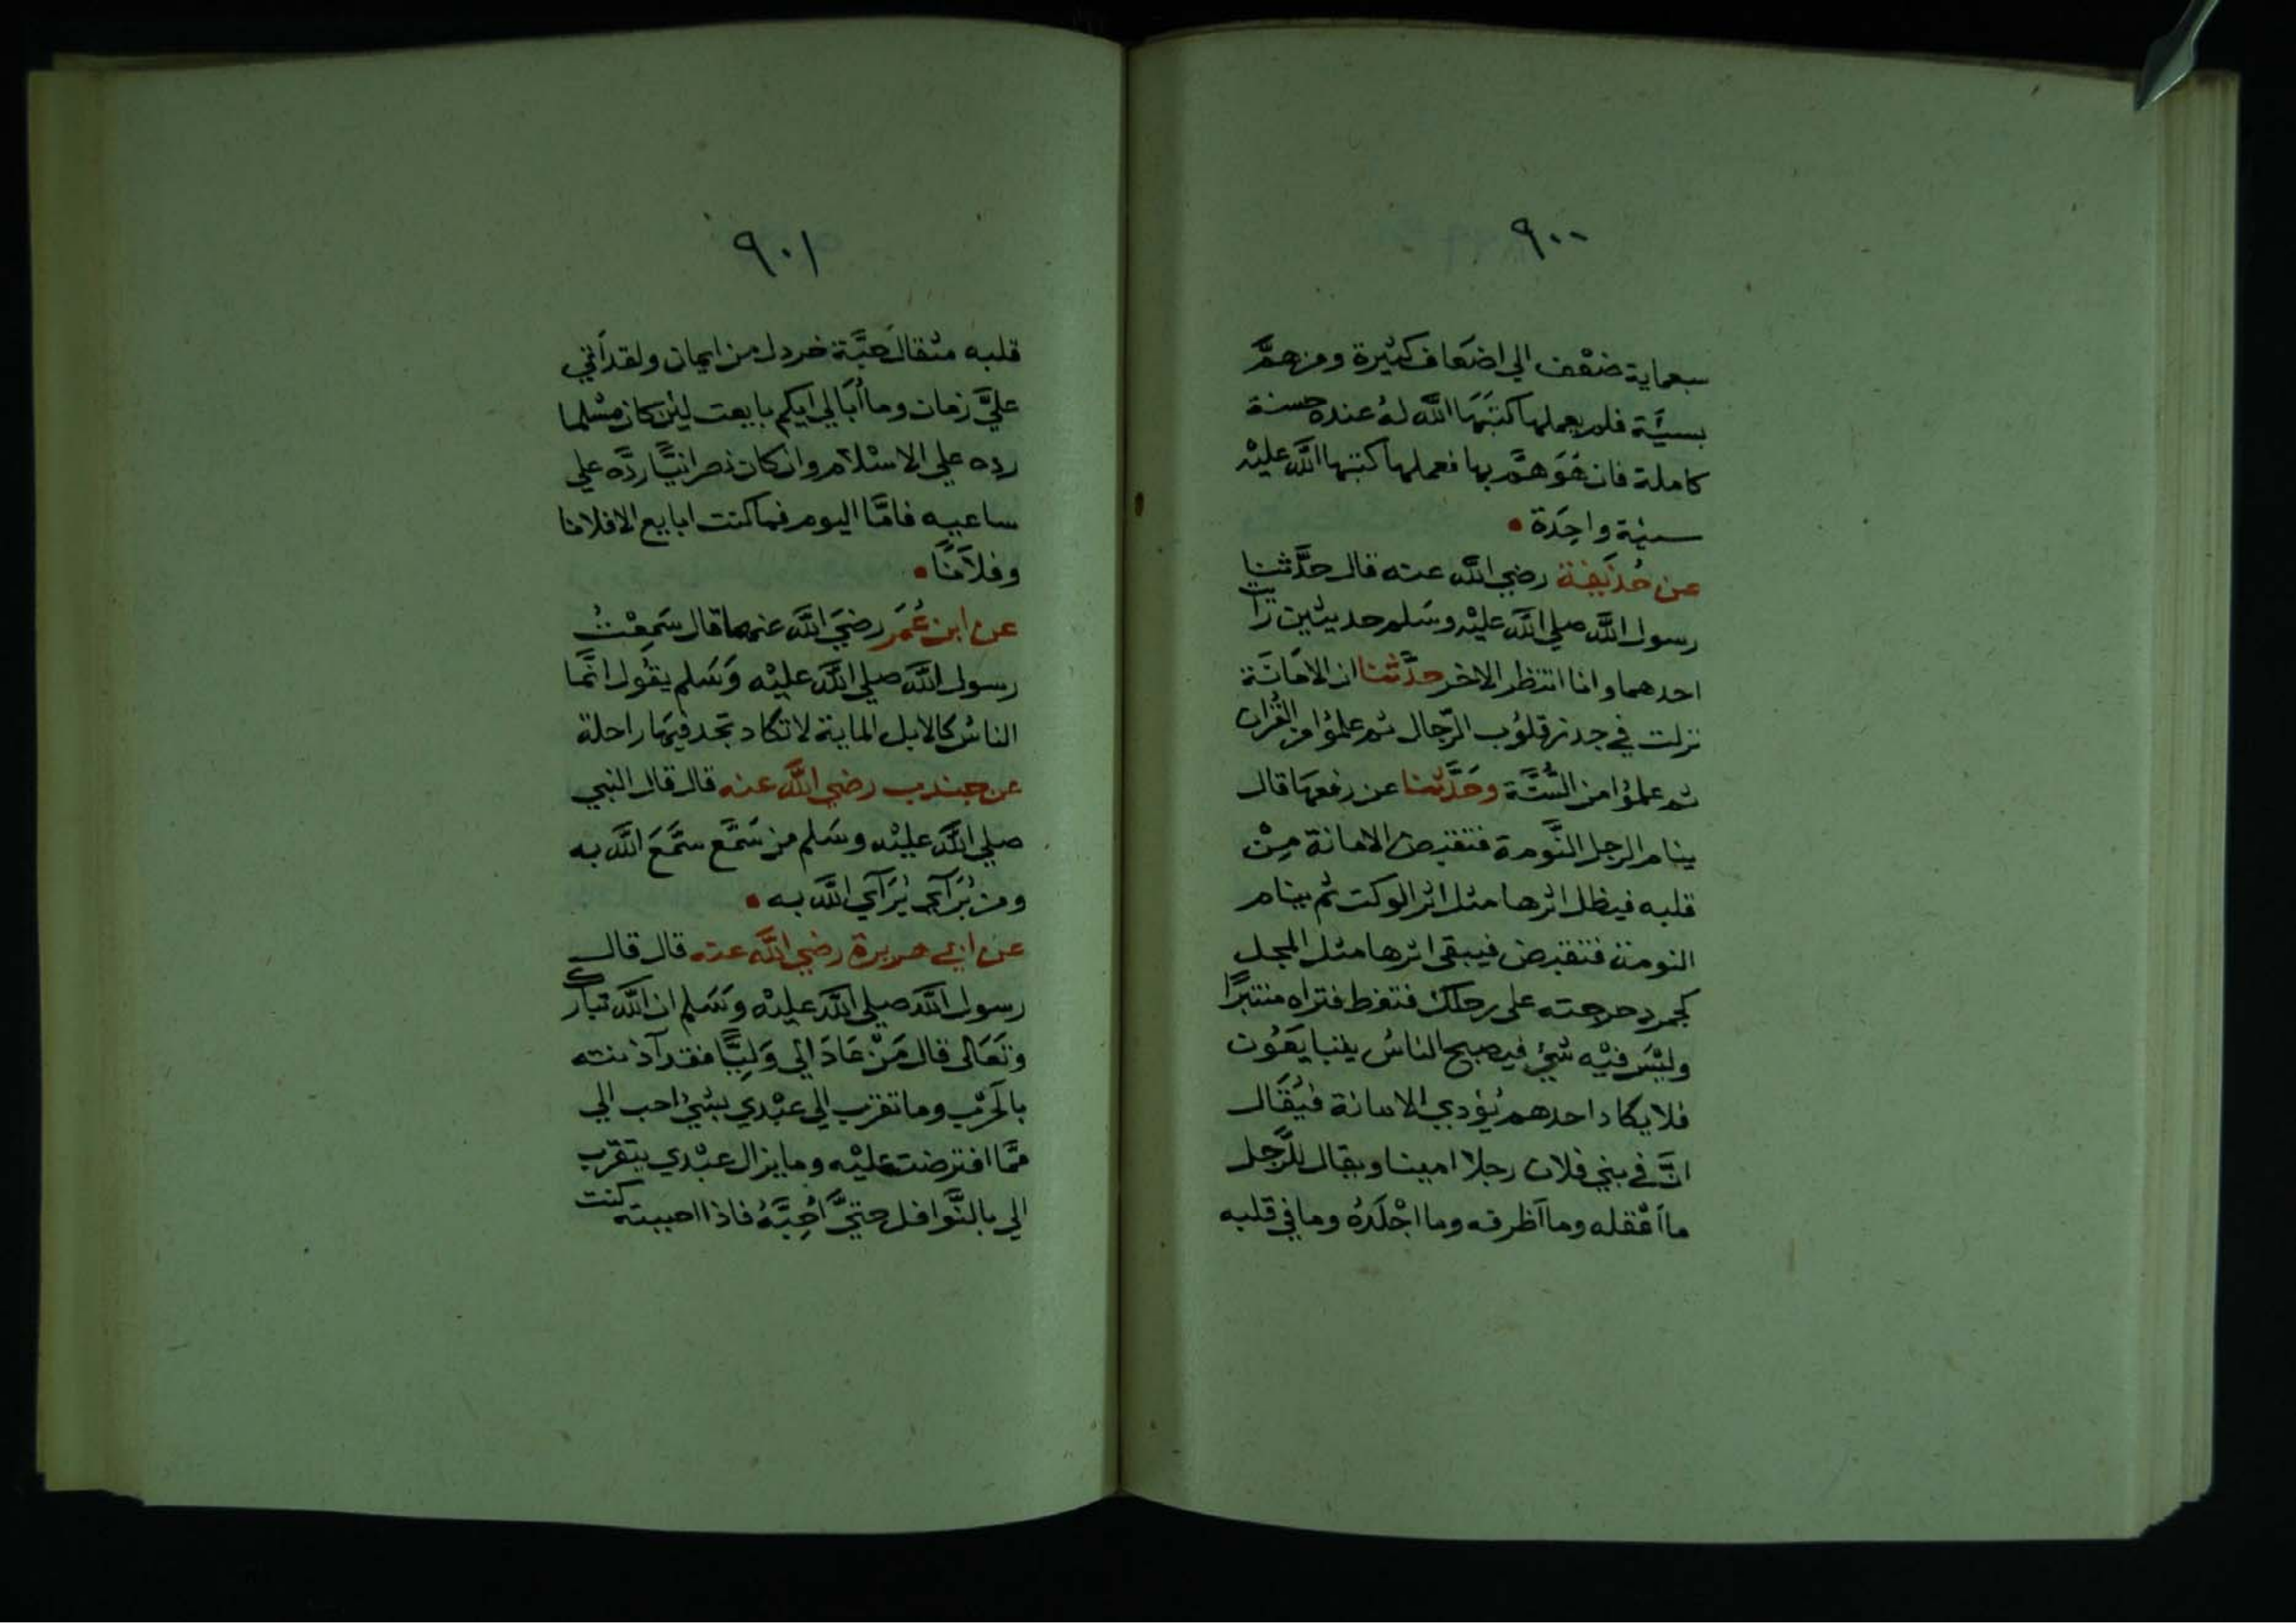 ٩٠٠
سبعماية ضعْف الي اضعَاف كثيرة ومن همَّ
بسيَّة فلم يعملها كتبَهَا اللَّه لهُ عنده حسنة
كاملة فان هُوَ همَّ بها فعملها كتبها اللَّه عليْه
سيئة واحِدَة •
عن حُذَيفة رضي اللَّه عنه قال حدَّثنا
رسول اللَّه صلي اللَّه عليْه وسَلم حديثين رَايت
احدهما وانا انتظر الاخر حدَّثنا ان الامَانَة
نزلت في جدر قلوُب الرّجال ثم علموُا من القُران
ثم علموُا من السُّنَّة وحَدَّثنا عن رفعهَا قال
ينام الرجل النَّومة فتقبض الامانة مِنْ
قلبه فيظل اثرها مثل اثر الوكت ثم ينام
النومة فتقبض فيبقي اثرها مثل المجل
كجمر دحرجته علي رجلك فنفط فتراه منتبرًا
وليْسَ فيْه شيُ فيصبح الناسُ يتبايعُون
فلا يكاد احدهم يُؤدي الامانة فيُقَال
انَّ في بني فلان رجلا امينا ويقال للرَّجل
ما اَعْقله وما اَظرفه وما اجْلَدُه وما في قلبه
٩٠١
قلبه مثقال حَبَّة خردل من ايمان ولقد اَتي
عليَّ زمان وما اُبَالي ايكم بايعت لئن كان مسْلما
رده علي الاسْلَام وان كان نصرانيًّا ردَّه علي
ساعيه فامَّا اليوم فما كنت ابايع الا فلانا
وفلَانًا •
عن ابن عُمَر رضيَ اللَّه عنهما قال سَمِعْتُ
رسول اللَّه صلي اللَّه عليْه وَسَلم يقُول انَّما
الناسُ كالابل الماية لا تكاد تجد فيهَا راحلة
عن جندب رضي اللَّه عنه قال قال النبي
صلي اللَّه عليْه وسَلم من سَمَّع سَمَّعَ اللَّه به
ومن يُرَآي يُرَآي اللَّه به •
عن ابي هريرة رضي اللَّه عنه قال قال
رسول اللَّه صلي اللَّه عليْه وَسَلم ان اللَّه تبارك
وتَعَالى قال مَنْ عَادَ الي وَلِيًّا فقد آذنته
بالحَرْب وما تقرب الي عبْدي بشيُ احب الي
ممَّا افترضت عليْه وما يزال عبْدي يتقرب
الي بالنَّوافل حتيَّ اُحِبَّهُ فاذا احببته كنت